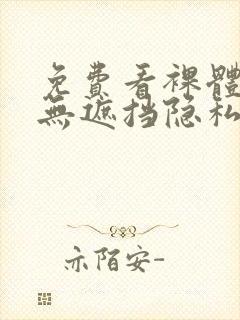 免費看裸體
無遮挡隐私
亦陌安-